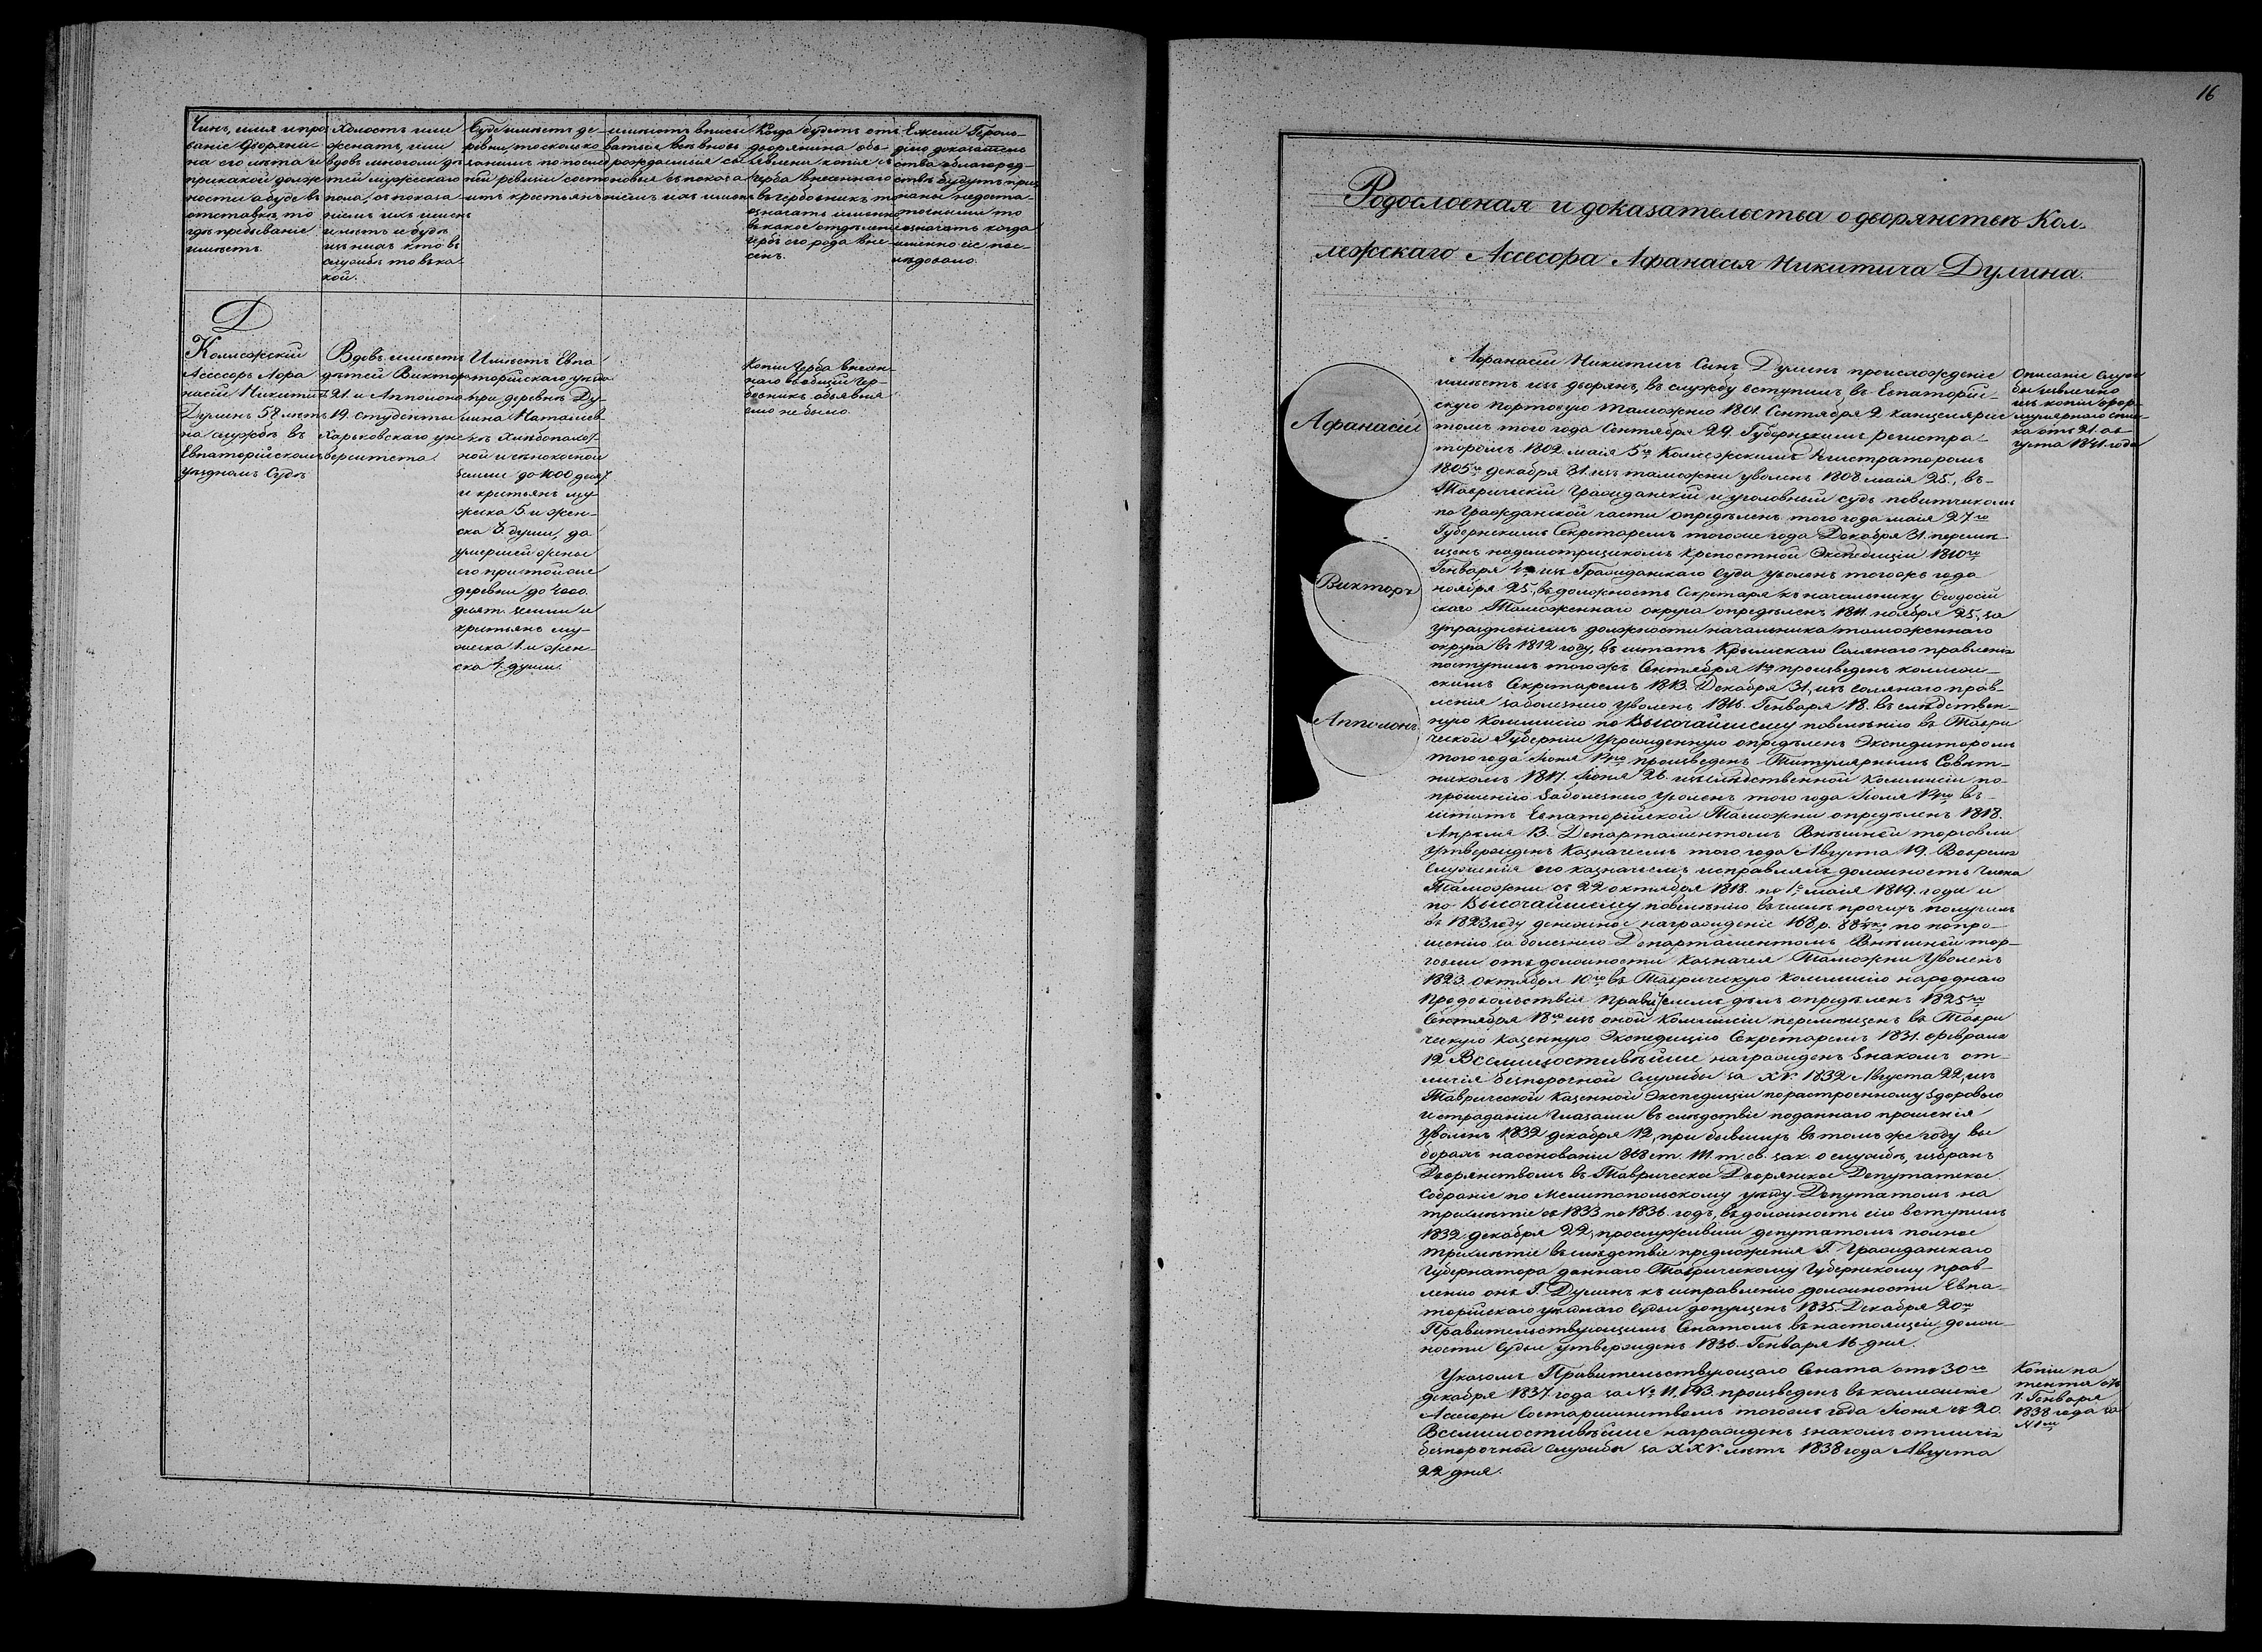 16
Чинъ, имя и про-
званіе дворяни-
на его лѣта и
при какой долж-
ности а буде въ
отставкѣ, то
гдѣ пребываніе
имѣетъ
Холостъ или
женатъ, или
вдовъ много ли дѣ-
тей мужескаго
пола, съ показа-
ніемъ ихъ именъ
имѣетъ и буде
изъ нихъ кто въ
службѣ то въ ка-
кой.
Буде имѣетъ де-
ревни, то сколько
за нимъ по послѣд-
ней ревизіи состо-
итъ крестьянъ
имѣютъ вписы-
ваться всѣ вновь
рождаемыя сы-
новья съ показа-
ніемъ ихъ именъ
Когда будетъ отъ
дворянина объ-
явлена копія съ
герба внесеннаго
въ гербовникъ то
означать именно
въ какое отдѣленіе
гербъ его рода вне-
сенъ.
Ежели Героль-
діею доказатель-
ства о благород-
ствѣ будутъ приз-
наны недоста-
точными то
означать когда
именно сіе пос-
лѣдовало.
Д
Коллежскій
Асессоръ Афа-
насій Никитичъ
Дулинъ 58 лѣтъ
на службѣ въ
Евпаторійскомъ
уѣздномъ Судѣ
Вдовъ имѣетъ
дѣтей Виктора
21. и Апполона
19. студенты
Харьковскаго уни-
верситета.
Имѣетъ Евпа-
торійскаго уѣзда
при деревнѣ Ду-
лина
хлѣбопахот-
ной и сѣнокосной
земли до 1000 десят.
и крестьянъ му-
жска 5. и жен-
ска 3. души, да
умершей жены
его при той же
деревни до 4000.
десят. земли и
крестьянъ му-
жска 1. и жен-
ска 4. души.
Копіи Герба внесен-
наго въ общій Гер-
бовникъ объявля
емо не было.
Родословная и доказательства о дворянствѣ Кол-
лежскаго Ассесора Афанасія Никитича Дулина.
Афанасій
Викторъ
Апполонъ
Афанасій Никитинъ Сынъ Дулинъ происхожденіе
имѣетъ изъ дворянъ, въ службу вступилъ въ Евпаторій-
скую портовую таможню 1801. Сентября 2. канцелярис-
томъ того года Сентября 29. Губернскимъ регистра-
торомъ 1802. маія 5го Коллежскимъ Регистраторомъ
1805го декабря 31. изъ таможни уволенъ 1808 маія 25., въ-
Таврическій Гражданскій и уголовный судъ повытчикомъ
по Гражданской части опредѣленъ того года маія 27го
Губернскимъ Секретаремъ того же года Декабря 31. перемѣ-
щенъ надсмотрщикомъ Крепостной Экспедиціи 1810го
Генваря изъ Гражданскаго Суда уволенъ того жъ года
ноября 25., въ должность Секретаря къ начальнику Ѳеодосій
скаго Таможеннаго округа опредѣленъ 1811. ноября 25., за
упраздненіемъ должности начальника таможеннаго
округа въ 1812 году, въ штатъ Крымскаго Солянаго правленія
поступилъ того жъ Сентября 1го произведенъ коллеж-
скимъ Секретаремъ 1813. Декабря 31., изъ солянаго прав-
ленія за болезнію уволенъ 1816. Генваря 18. въ слѣдствен-
ную Коммисію по Высочайшему повелѣнію въ Таври
ческой Губерніи учрежденную опредѣленъ Экспедиторомъ
того года Іюня произведенъ Титулярнымъ Совѣт-
никомъ 1817. Іюня 26. изъ слѣдственной Коммисіи по
прошенію за болезнію уволенъ того года Іюля въ-
штатъ Евпаторійской Таможни опредѣленъ 1818.
Апрѣля 13. Департаментомъ Внѣшней торговли
утвержденъ Казначеемъ того года Августа 19. Вовремя
служенія его казначеемъ исправлялъ должность Члена
Таможни съ 22 октября 1818. по 1е маія 1819. года и
по Высочайшему повелѣнію въ числѣ прочихъ получилъ
въ 1823 году денежное награжденіе 168 р. 88 по попро-
шенію за болезнію Департаментомъ Внѣшней тор-
говли отъ должности Казначея Таможни уволенъ
1823. октября 10го въ Таврическую Коммисію народнаго
продовольствія Правителемъ дѣлъ опредѣленъ 1825го
Сентября 18го изъ оной Коммисіи перемѣщенъ въ Таври
ческую Казенную Экспедицію Секретаремъ 1831. Февраля
12 Всемилостивѣйше награжденъ Знакомъ от-
личія безпорочной службы за XV. 1832 Августа 22, изъ
Таврической Казенной Экспедиціи по растроенному здоровью
и страданіи глазами въ слѣдствіе поданнаго прошенія
уволенъ 1832 декабря 12, при бывшихъ въ томъ же году вы
борахъ на основаніи ст. III. т. св. зак. о службѣ, избранъ
Дворянствомъ въ Таврическое Дворянское Депутатское
Собраніе по Мелитопольскому уѣзду Депутатомъ на
трехлѣтіе съ 1833 по 1836. годъ, въ должность сію вступилъ
1832 декабря 22, прослуживши депутатомъ полное
трехлѣтіе въ слѣдствіе предложенія Г. Гражданскаго
Губернатора даннаго Таврическому Губернскому прав-
ленію онъ Г. Дулинъ къ исправленію должности Евпа-
торійскаго уѣзднаго Судьи допущенъ 1835. Декабря 20го
Правительствующимъ Сенатомъ въ настоящей долж-
ности Судьи утвержденъ 1836. Генваря 16 дня.
Указомъ Правительствующаго Сената отъ 30го
декабря 1837. года за № 11,193. произведенъ въ коллежскіе
Ассесоры со старшинствомъ того же года Іюня съ 20.
Всемилостивѣйше награжденъ знакомъ отличія
безпорочной службы за XXV лѣтъ 1838 года Августа
22 дня.
Описаніе служ-
бы извлечено
изъ копіи фор-
мулярнаго спис-
ка отъ 21. ав-
густа 1841 года
Копія па
тента отъ
7. Генваря
1838 года за
№